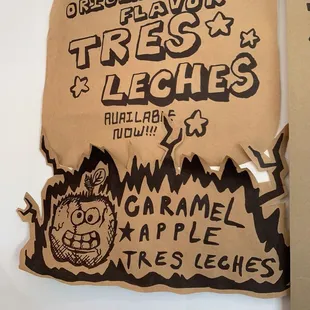 FLAVOR
TRES
LECHES
AVAILABLE
NOW!!!
CARAMEL
APPLE
TRES LECHES